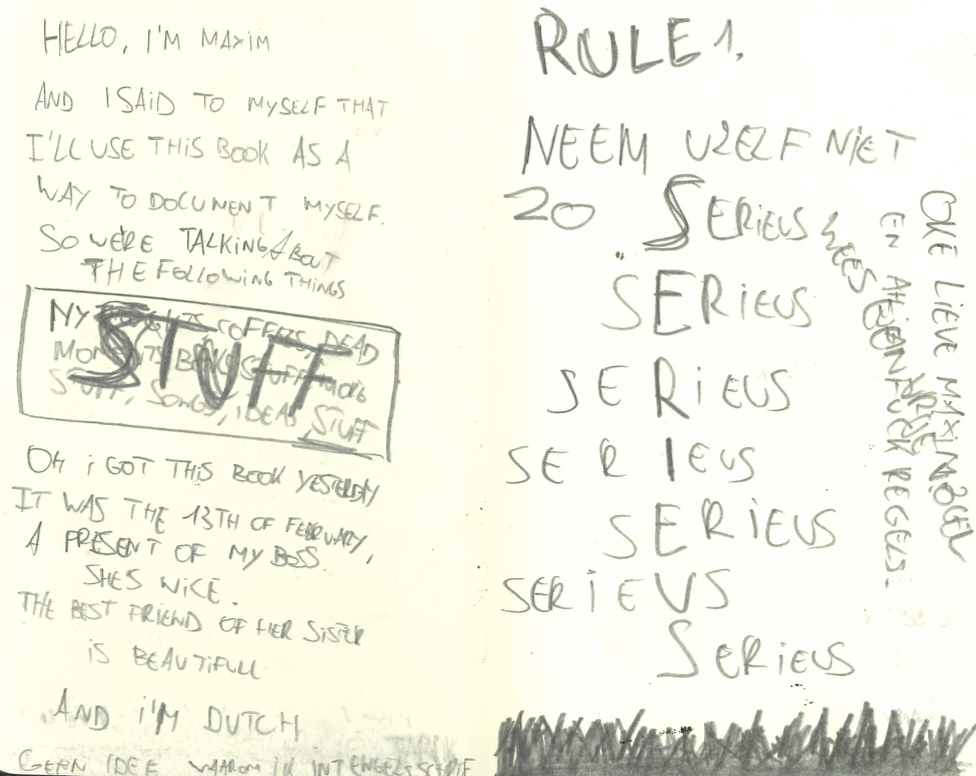 HELLO, I'M MAXIM
AND I SAID TO MYSELF THAT
I'LL USE THIS BOOK AS A
WAY TO DOCUMENT MYSELF.
SO WE'RE TALKING ABOUT
THE FOLLOWING THINGS
MY COFFEES, DEAD
MOMENTS STUFF MORE
STUFF, SONGS, IDEAS STUFF
STUFF
OH I GOT THIS BOOK YESTERDAY
IT WAS THE 13TH OF FEBRUARY,
A PRESENT OF MY BOSS.
SHE'S NICE.
THE BEST FRIEND OF HER SISTER
IS BEAUTIFULL
AND I'M DUTCH
GEEN IDEE WAAROM IK INT ENGELS SCHRIJF
RULE 1.
NEEM UZELF NIET
ZO SERIEUS
SERIEUS
SERIEUS
SERIEUS
SERIEUS
SERIEUS
SERIEUS
WEES
OKE LIEVE MAXIM
EN FUCK REGELS.